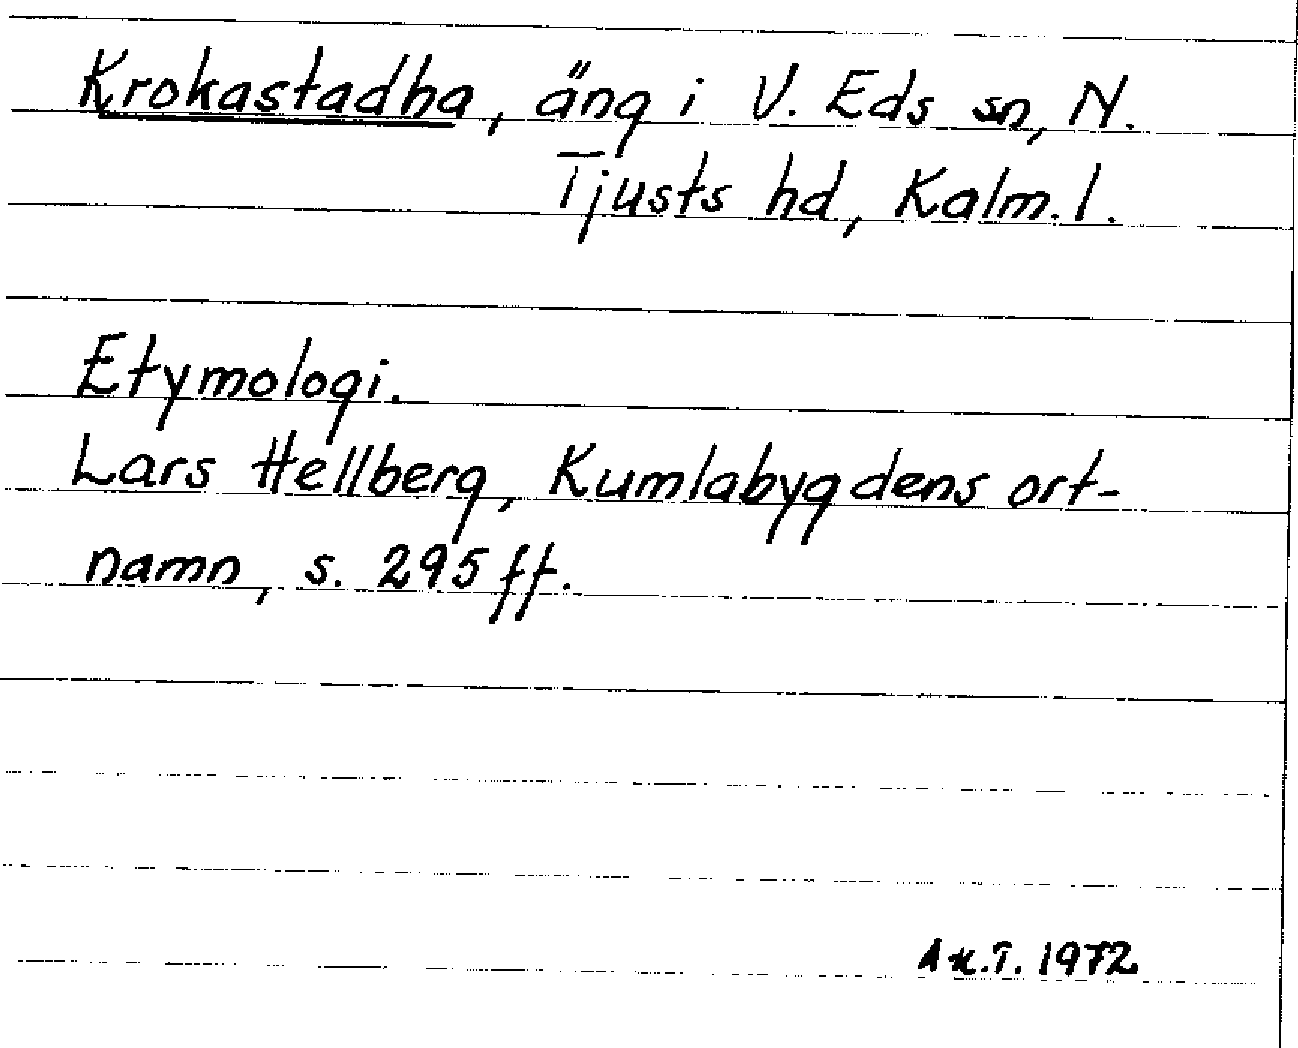 Krokastadha, äng i V. Eds sn, N.
Tjusts hd, Kalm. l.
Etymologi.
Lars Hellberg, Kumlabygdens ort-
namn, s. 295 ff.
Ax.T. 1972